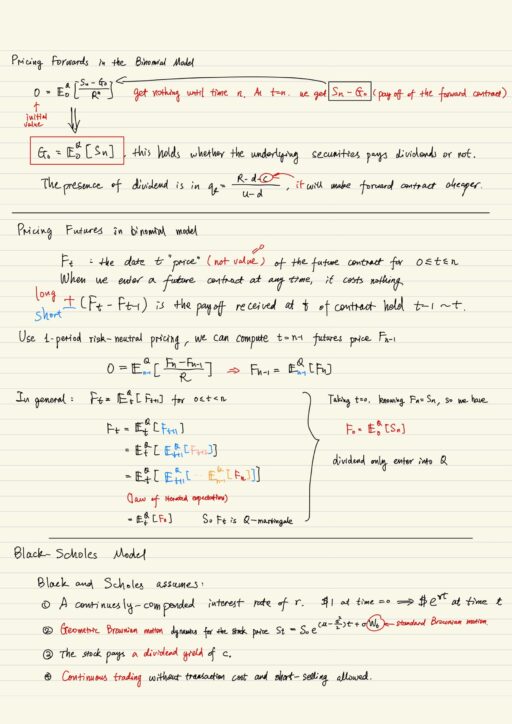 Pricing Forwards in the Binomial Model
0 = E₀^Q [ (Sn - G₀) / R^n ] get nothing until time n. At t=n. we get Sn - G₀ (pay off of the forward contract)
↑
initial
value
⇓
G₀ = E₀^Q [Sn] , this holds whether the underlying securities pays dividends or not.
The presence of dividend is in = (R - d - c) / (u - d) , it will make forward contract cheaper.
Pricing Futures in binomial model
Ft : the date t "price" (not value) of the future contract for 0≤t≤n
When we enter a future contract at any time, it costs nothing.
long
short
± (Ft - Ft-1) is the payoff received at t of contract hold t-1 ~ t.
Use 1-period risk-neutral pricing, we can compute t=n-1 futures price Fn-1
0 = E_{n-1}^Q [ (Fn - Fn-1) / R ] ⇒ Fn-1 = E_{n-1}^Q [Fn]
In general : Ft = E_t^Q [Ft+1] for 0≤t<n
Ft = E_t^Q [Ft+1]
= E_t^Q [ E_{t+1}^Q [Ft+2]]
= E_t^Q [ E_{t+1}^Q [ ··· E_{n-1}^Q [Fn]]]
(law of iterated expectations)
= E_t^Q [Fn] So Ft is Q-martingale
Taking t=0. knowing Fn=Sn, so we have
F₀ = E₀^Q [Sn]
dividend only enter into Q
Black-Scholes Model
Black and Scholes assumes :
① A continuesly-componded interest rate of r. $1 at time =0 ⟹ $e^{rt} at time t
② Geometric Brownian motion dynamics for the stock price St = S₀ e^{(μ - σ²/2)t + σWt} ← standard Brownian motion
③ The stock pays a dividend yield of c.
④ Continuous trading without transaction cost and short-selling allowed.